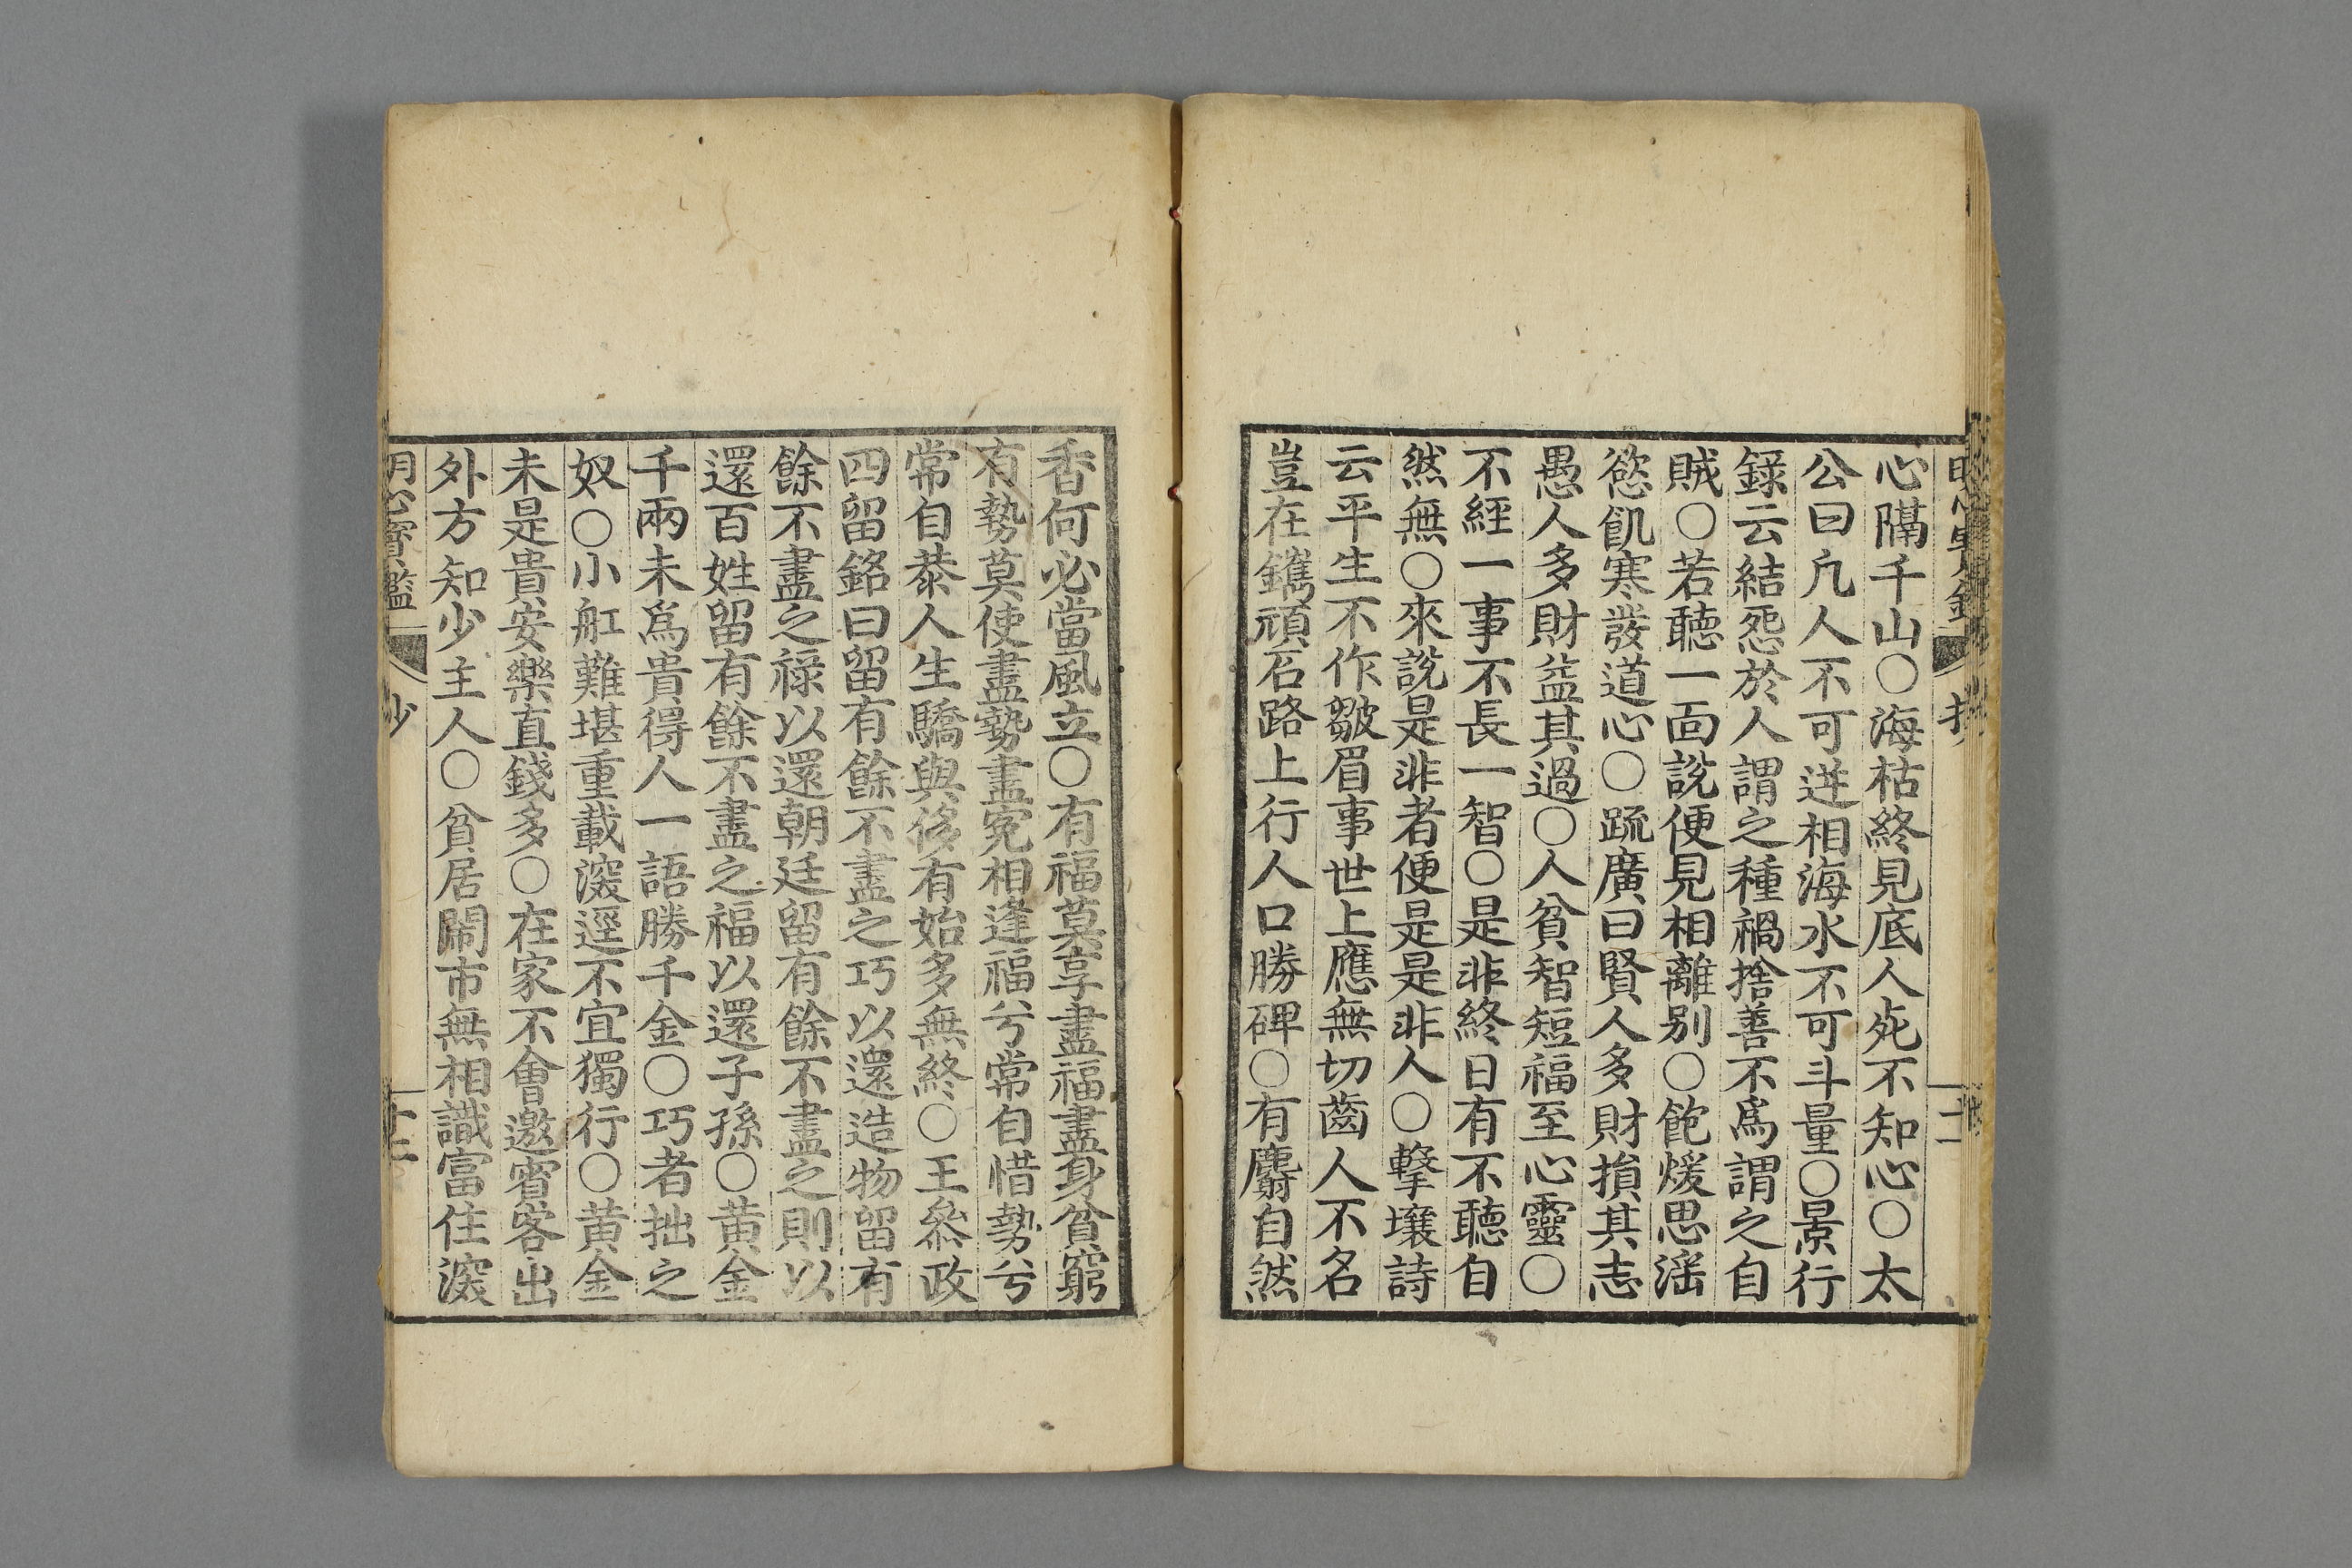 心隔千山○海枯終見底人死不知心○太
公曰凡人不可逆相海水不可斗量○景行
錄云結怨於人謂之種禍捨善不爲謂之自
賊○若聽一面說便見相離別○飽煖思淫
慾飢寒發道心○疏廣曰賢人多財損其志
愚人多財益其過○人貧智短福至心靈○
不經一事不長一智○是非終日有不聽自
然無○來說是非者便是是非人○擊壤詩
云平生不作皺眉事世上應無切齒人不名
豈在鐫頑石路上行人口勝碑○有麝自然
香何必當風立○有福莫享盡福盡身貧窮
有勢莫使盡勢盡寃相逢福兮常自惜勢兮
常自恭人生驕與侈有始多無終○王叅政
四留銘曰留有餘不盡之巧以還造物留有
餘不盡之祿以還朝廷留有餘不盡之則以
還百姓留有餘不盡之福以還子孫○黃金
千兩未爲貴得人一語勝千金○巧者拙之
奴○小舡難堪重載深逕不宜獨行○黃金
未是貴安樂直錢多○在家不會邀賓客出
外方知少主人○貧居閙市無相識富住深
明心寶鑑 抄 十二